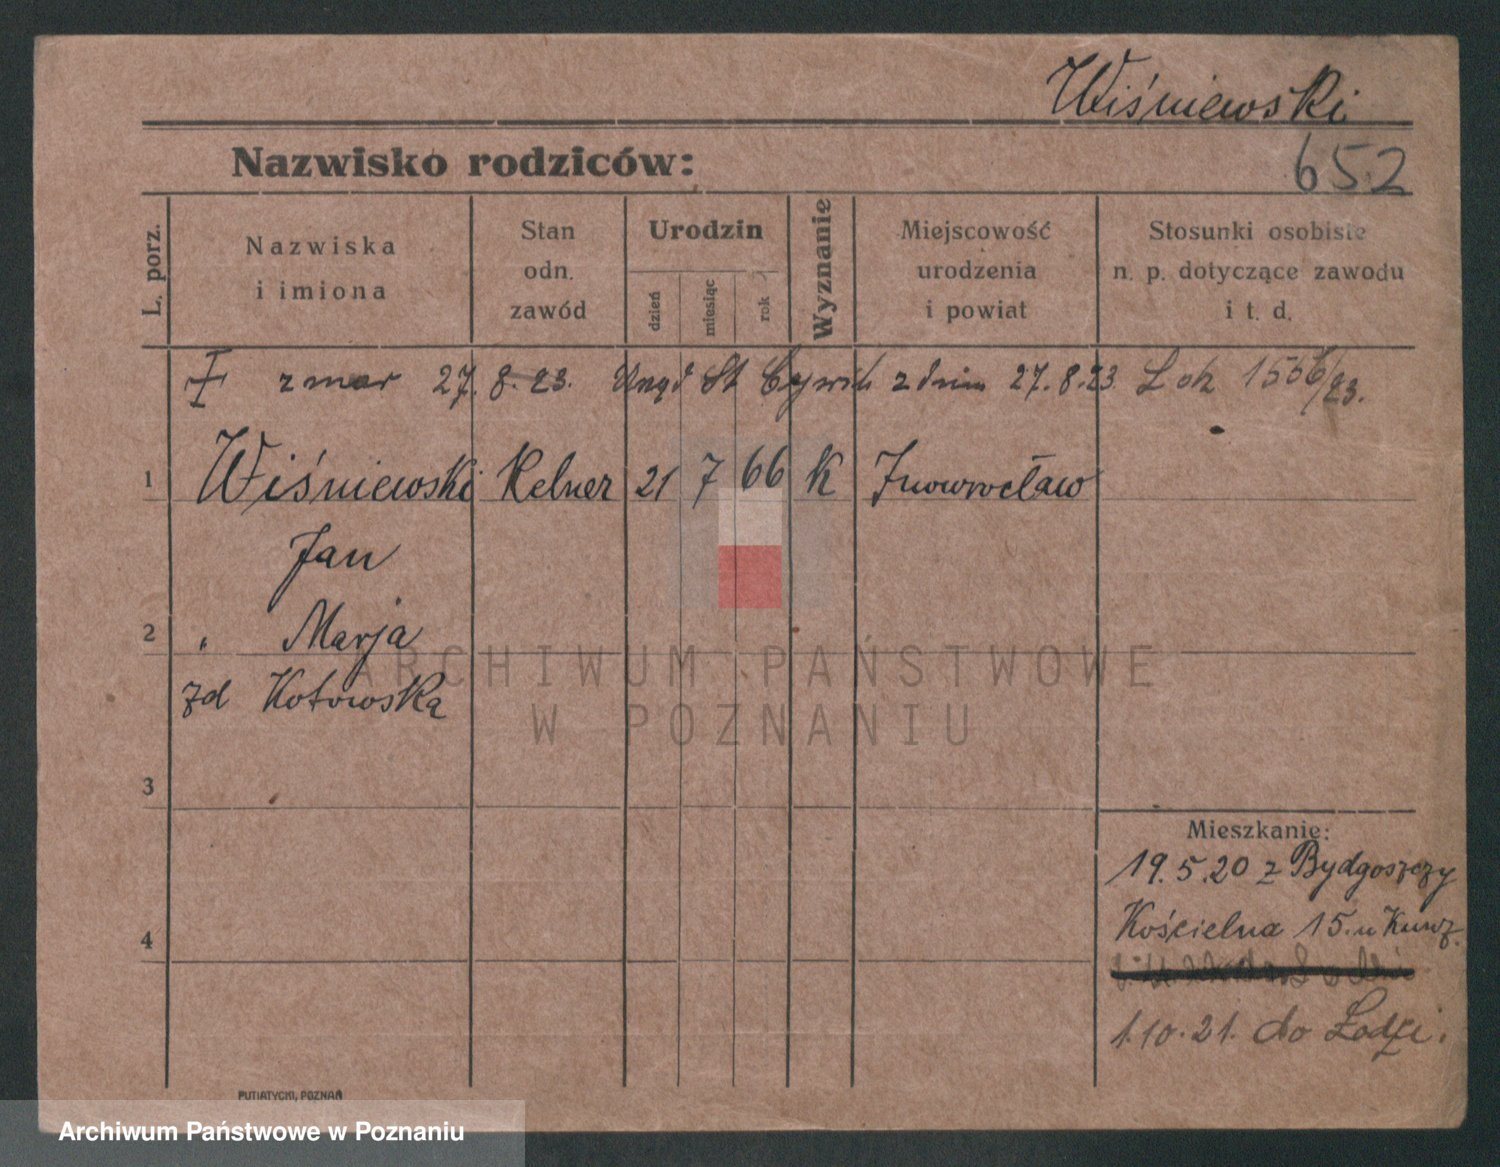 Wiśniewski
Nazwisko rodziców:
652
L. porz.
Nazwiska
i imiona
Stan
odn.
zawód
Urodzin
dzień
miesiąc
rok
Wyznanie
Miejscowość
urodzenia
i powiat
Stosunki osobiste
n. p. dotyczące zawodu
i t. d.
zmar 27. 8. 23. Urząd St Cywil z dnia 27.8.23
1 Wiśniewski Kelner 21 7 66 K Inowrocław
Jan
2 " Marja
zd Kotowska
3
4
Mieszkanie:
19.5.20 z Bydgoszczy
Kościelna 15. u
1.10.21. do Łodzi.
PUTIATYCKI, POZNAŃ
ARCHIWUM PAŃSTWOWE
W POZNANIU
Archiwum Państwowe w Poznaniu